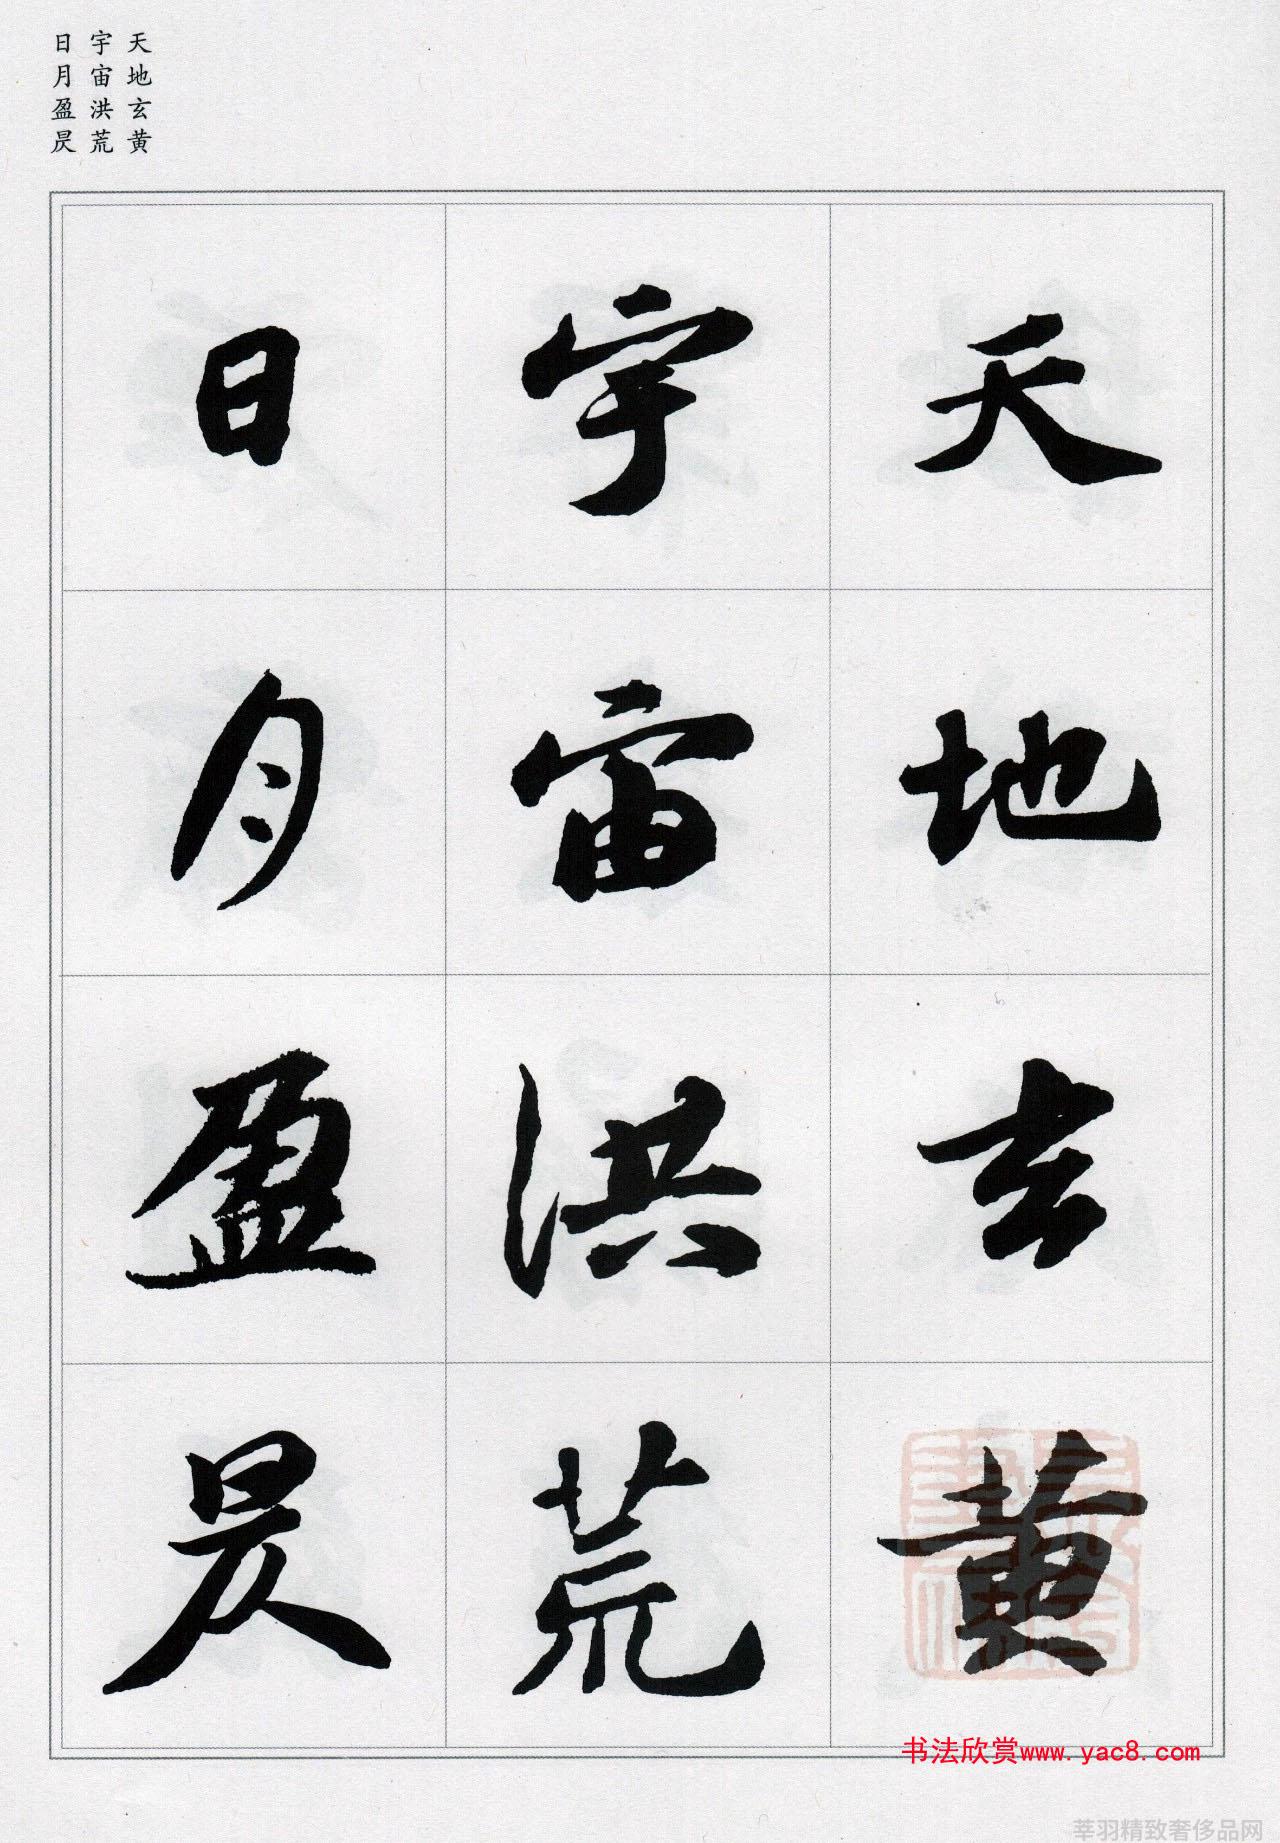 天地玄黄
宇宙洪荒
日月盈昃
天地玄黄
宇宙洪荒
日月盈昃
书法欣赏www.yac8.com
莘羽精致奢侈品网